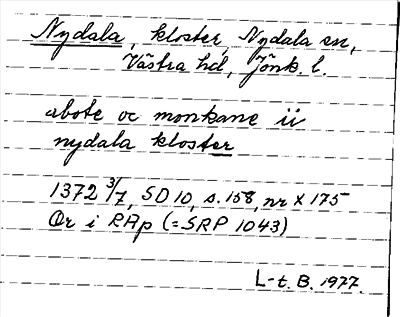 Nydala, kloster, Nydala sn,
Västra hd, Jönk. l.
abote oc monkane ii
nydala kloster
1372 3/7, SD 10, s. 158, nr X 175
Or i RAp (= SRP 1043)
L-t. B. 1977.